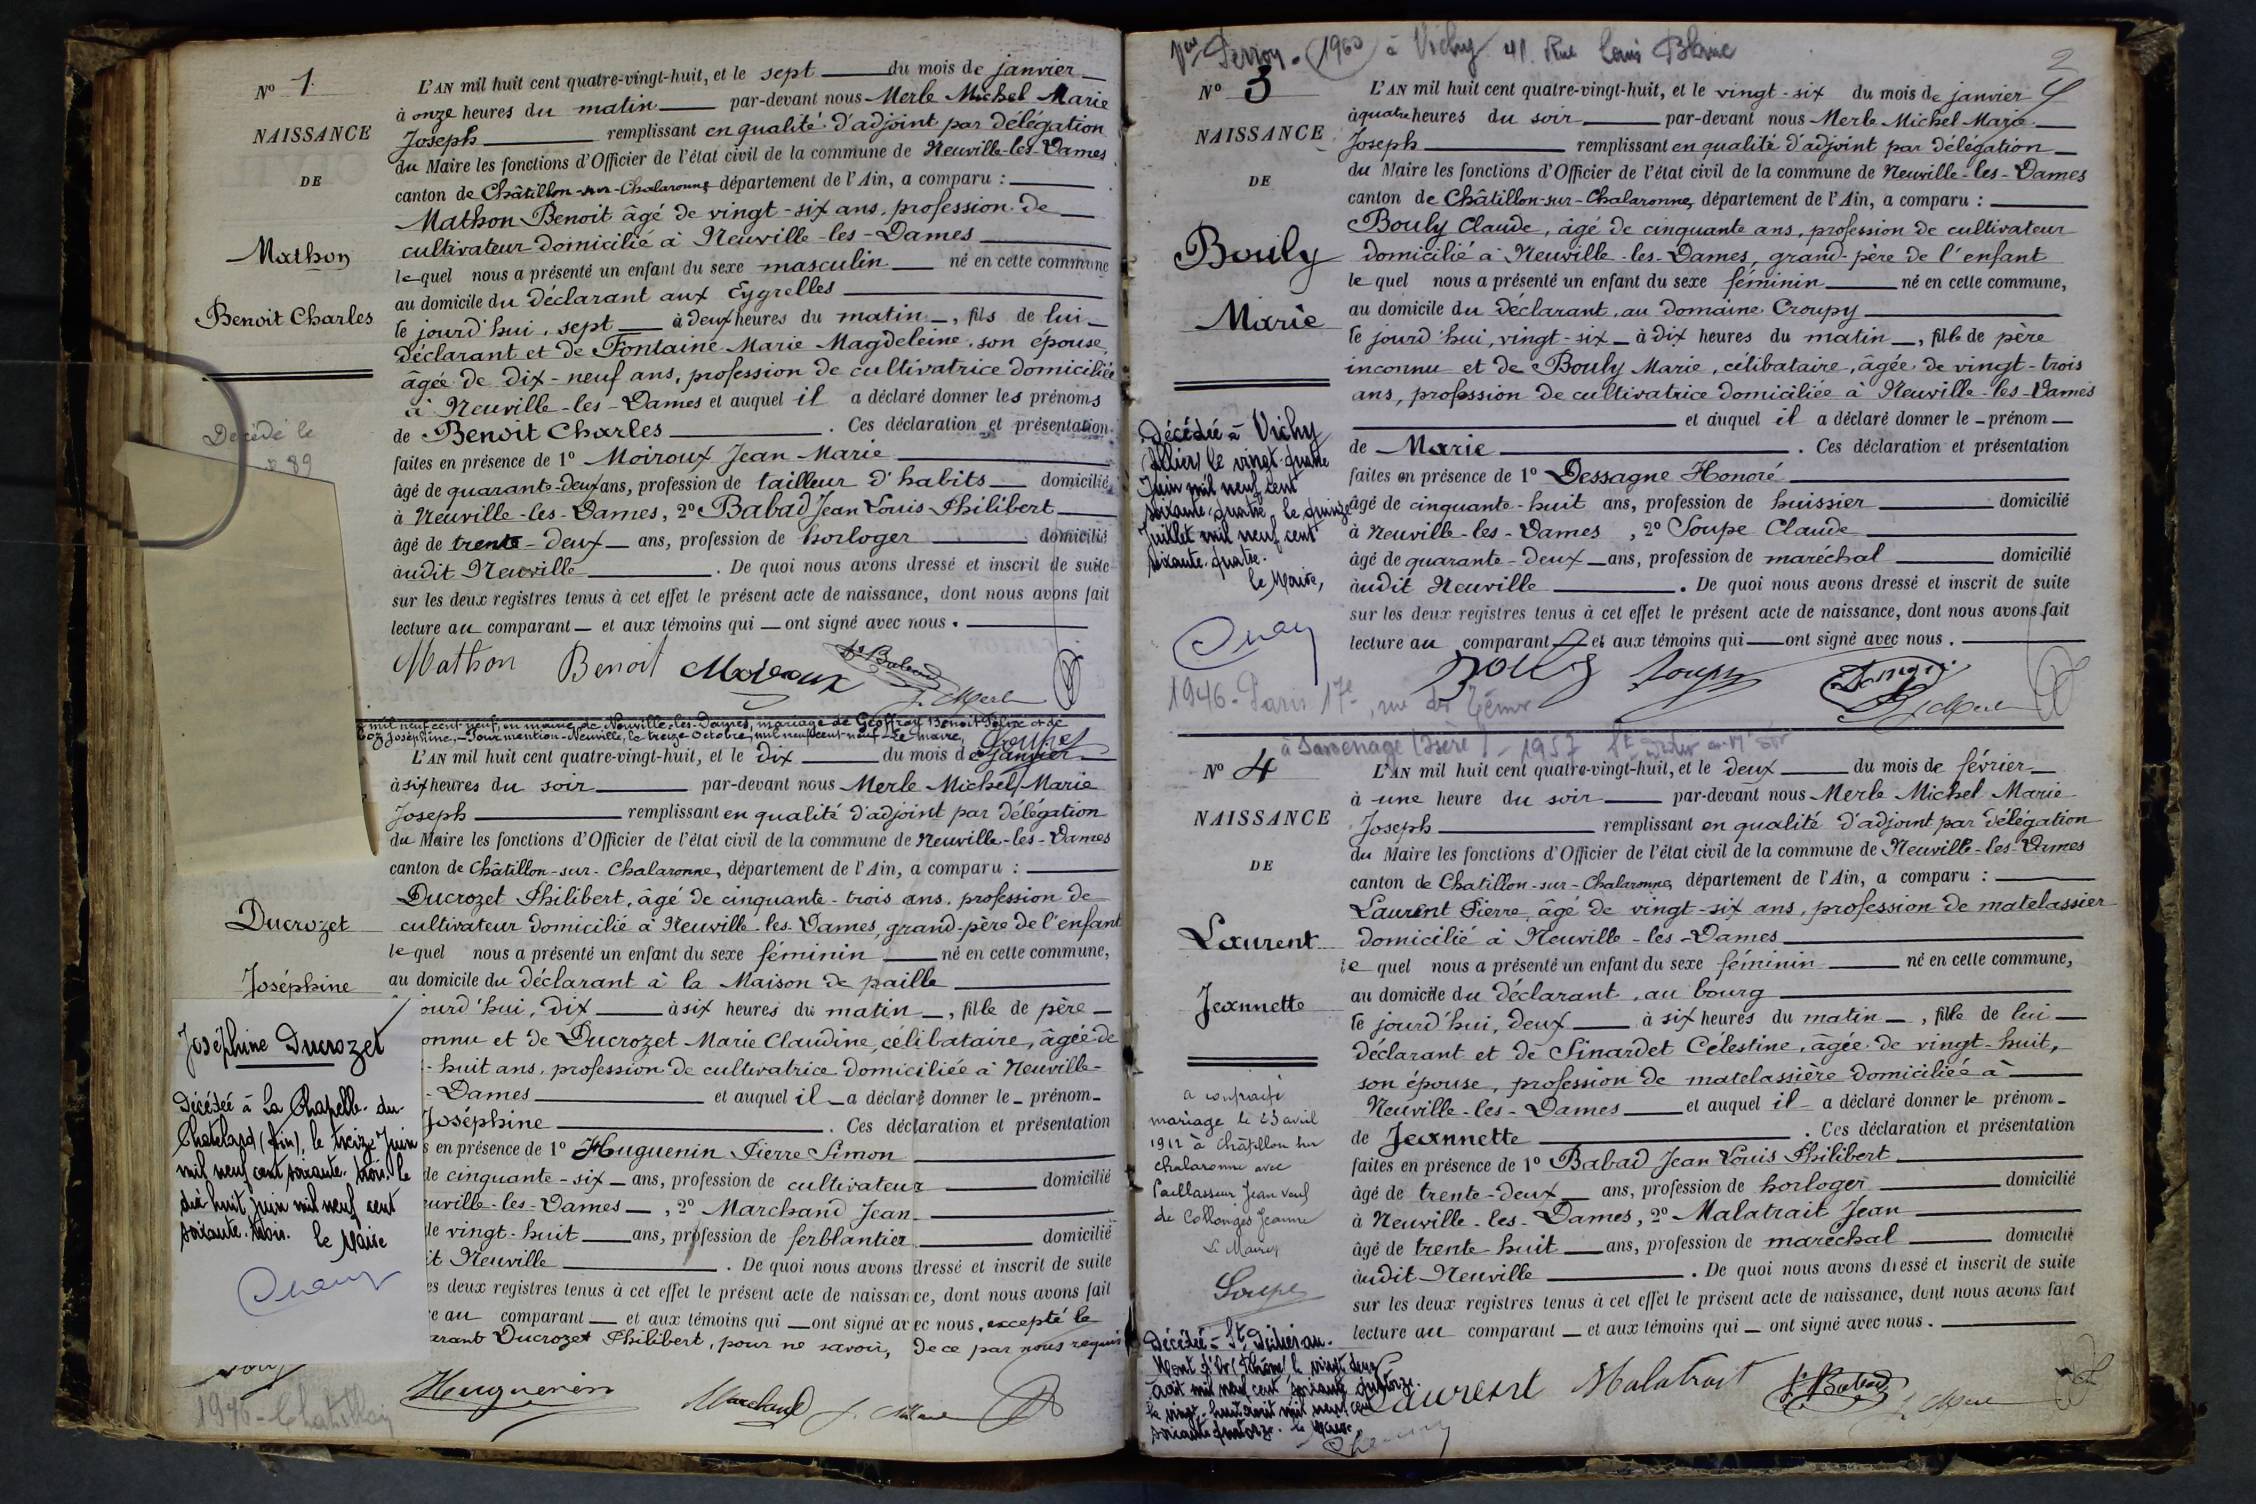 Nº 1
NAISSANCE
DE
Mathon
Benoit Charles
Décédé le
89
L'AN mil huit cent quatre-vingt-huit, et le sept du mois de janvier
à onze heures du matin par-devant nous Merle Michel Marie
Joseph remplissant en qualité d'adjoint par délégation
du Maire les fonctions d'Officier de l'état civil de la commune de Neuville-les-Dames
canton de Châtillon-sur-Chalaronne département de l'Ain, a comparu :
Mathon Benoit âgé de vingt-six ans, profession de
cultivateur domicilié à Neuville-les-Dames
lequel nous a présenté un enfant du sexe masculin né en cette commune
au domicile du déclarant aux Eygrelles
le jourd'hui, sept à deux heures du matin, fils de lui
déclarant et de Fontaine Marie Magdeleine, son épouse,
âgée de dix-neuf ans, profession de cultivatrice domiciliée
à Neuville-les-Dames et auquel il a déclaré donner les prénoms
de Benoit Charles . Ces déclaration et présentation
faites en présence de 1º Moiroux Jean Marie
âgé de quarante-deux ans, profession de tailleur d'habits domicilié
à Neuville-les-Dames, 2º Babad Jean Louis Philibert
âgé de trente-deux ans, profession de horloger domicilié
audit Neuville . De quoi nous avons dressé et inscrit de suite
sur les deux registres tenus à cet effet le présent acte de naissance, dont nous avons fait
lecture au comparant et aux témoins qui ont signé avec nous.
Mathon Benoit Moiroux Babad J. Merle
mil neuf cent neuf, en mairie de Neuville-les-Dames, mariage de Geoffray Benoit Félix et de
Joséphine, - Pour mention - Neuville, le treize Octobre, mil neuf cent neuf - Le maire,
Ducrozet
Joséphine
L'AN mil huit cent quatre-vingt-huit, et le dix du mois de janvier
à six heures du soir par-devant nous Merle Michel Marie
Joseph remplissant en qualité d'adjoint par délégation
du Maire les fonctions d'Officier de l'état civil de la commune de Neuville-les-Dames
canton de Châtillon-sur-Chalaronne, département de l'Ain, a comparu :
Ducrozet Philibert, âgé de cinquante-trois ans, profession de
cultivateur domicilié à Neuville-les-Dames, grand-père de l'enfant
lequel nous a présenté un enfant du sexe féminin né en cette commune,
au domicile du déclarant à la Maison de paille
ourd'hui, dix à six heures du matin, fille de père
onnu et de Ducrozet Marie Claudine, célibataire, âgée de
-huit ans, profession de cultivatrice domiciliée à Neuville-
-Dames et auquel il a déclaré donner le prénom
Joséphine . Ces déclaration et présentation
s en présence de 1º Huguenin Pierre Simon
de cinquante-six ans, profession de cultivateur domicilié
euville-les-Dames, 2º Marchand Jean
de vingt-huit ans, profession de ferblantier domicilié
it Neuville . De quoi nous avons dressé et inscrit de suite
es deux registres tenus à cet effet le présent acte de naissance, dont nous avons fait
re au comparant et aux témoins qui ont signé avec nous, excepté le
arant Ducrozet Philibert, pour ne savoir, de ce par nous requis
Huguenin Marchand
Joséphine Ducrozet
Décédée à La Chapelle-du-
Chatelard (Ain), le treize Juin
mil neuf cent soixante-trois. le
dix huit juin mil neuf cent
soixante-trois. le Maire
1946 - Chatillon
1960 à Vichy 41 Rue Louis Blanc
2
Nº 3
NAISSANCE
DE
Bouly
Marie
Décédée à Vichy
(Allier) le vingt-quatre
Juin mil neuf cent
soixante-quatre, le quinze
Juillet mil neuf cent
soixante-quatre.
le Maire,
L'AN mil huit cent quatre-vingt-huit, et le vingt-six du mois de janvier
à quatre heures du soir par-devant nous Merle Michel Marie
Joseph remplissant en qualité d'adjoint par délégation
du Maire les fonctions d'Officier de l'état civil de la commune de Neuville-les-Dames
canton de Châtillon-sur-Chalaronne, département de l'Ain, a comparu :
Bouly Claude, âgé de cinquante ans, profession de cultivateur
domicilié à Neuville-les-Dames, grand-père de l'enfant
lequel nous a présenté un enfant du sexe féminin né en cette commune,
au domicile du déclarant, au domaine Croupy
le jourd'hui, vingt-six à dix heures du matin, fille de père
inconnu et de Bouly Marie, célibataire, âgée de vingt-trois
ans, profession de cultivatrice domiciliée à Neuville-les-Dames
et auquel il a déclaré donner le prénom
de Marie . Ces déclaration et présentation
faites en présence de 1º Dessagne Honoré
âgé de cinquante-huit ans, profession de huissier domicilié
à Neuville-les-Dames, 2º Soupe Claude
âgé de quarante-deux ans, profession de maréchal domicilié
audit Neuville . De quoi nous avons dressé et inscrit de suite
sur les deux registres tenus à cet effet le présent acte de naissance, dont nous avons fait
lecture au comparant et aux témoins qui ont signé avec nous.
Bouly Soupe
1946 - Paris 17e, rue
à Sassenage (Isère) - 1957
Nº 4
NAISSANCE
DE
Laurent
Jeannette
a contracté
mariage le 23 avril
1912 à Châtillon sur
Chalaronne avec
Paillasseur Jean veuf
de Collonges Jeanne
Le Maire
Soupe
Décédée à St Didier au
Mont d'Or (Rhône), le vingt deux
Août mil neuf cent soixante quatorze.
le vingt-huit août mil neuf cent
soixante quatorze. le Maire
L'AN mil huit cent quatre-vingt-huit, et le deux du mois de février
à une heure du soir par-devant nous Merle Michel Marie
Joseph remplissant en qualité d'adjoint par délégation
du Maire les fonctions d'Officier de l'état civil de la commune de Neuville-les-Dames
canton de Chatillon-sur-Chalaronne, département de l'Ain, a comparu :
Laurent Pierre, âgé de vingt-six ans, profession de matelassier
domicilié à Neuville-les-Dames
le quel nous a présenté un enfant du sexe féminin né en cette commune,
au domicile du déclarant, au bourg
le jourd'hui, deux à six heures du matin, fille de lui
déclarant et de Pinardet Célestine, âgée de vingt-huit,
son épouse, profession de matelassière domiciliée à
Neuville-les-Dames et auquel il a déclaré donner le prénom
de Jeannette . Ces déclaration et présentation
faites en présence de 1º Babad Jean Louis Philibert
âgé de trente-deux ans, profession de horloger domicilié
à Neuville-les-Dames, 2º Malatrait Jean
âgé de trente huit ans, profession de maréchal domicilié
audit Neuville . De quoi nous avons dressé et inscrit de suite
sur les deux registres tenus à cet effet le présent acte de naissance, dont nous avons fait
lecture au comparant et aux témoins qui ont signé avec nous.
Laurent Malatrait Babad J. Merle